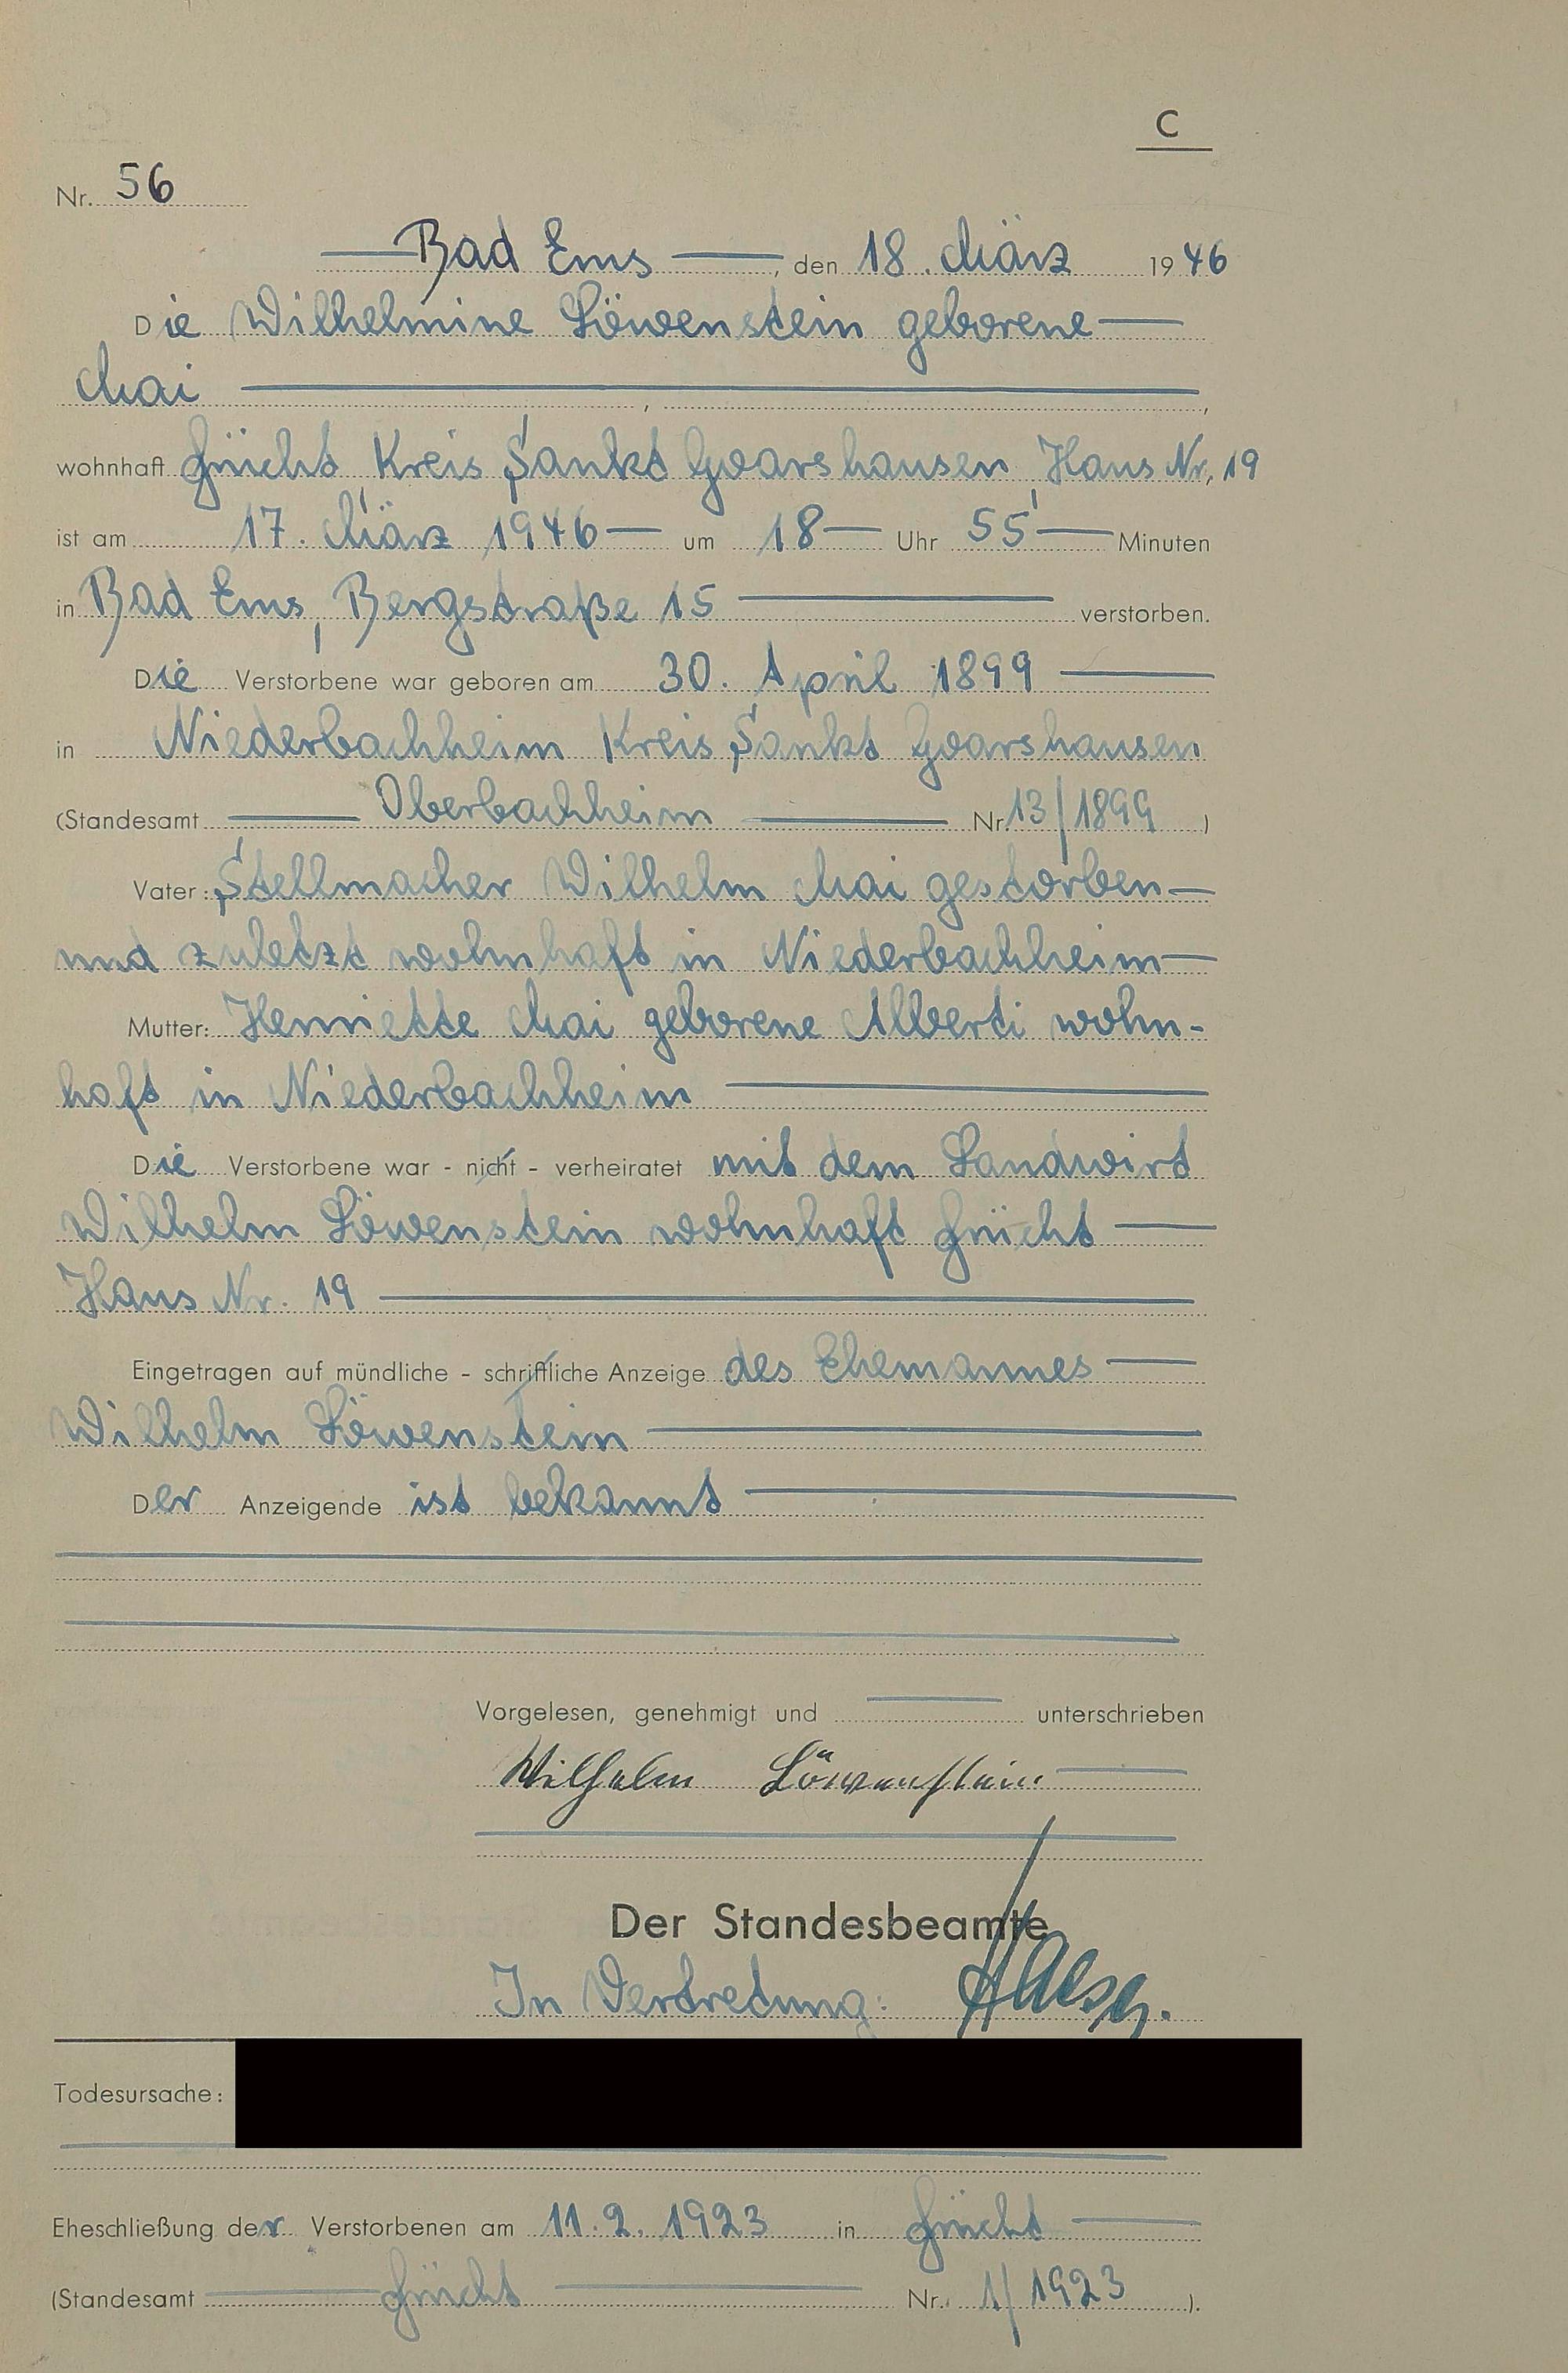 C
Nr. 56
Bad Ems, den 18. März 1946
Die Wilhelmine Löwenstein geborene
Mai
wohnhaft Früecht Kreis Sankt Goarshausen, Haus Nr. 19
ist am 17. März 1946 um 18 Uhr 55 Minuten
in Bad Ems, Bergstraße 15 verstorben.
Die Verstorbene war geboren am 30. April 1899
in Niederbachheim Kreis Sankt Goarshausen
(Standesamt Oberbachheim Nr. 13/1899)
Vater: Stellmacher Wilhelm Mai gestorben
und zuletzt wohnhaft in Niederbachheim
Mutter: Henriette Mai geborene Alberti wohn-
haft in Niederbachheim
Die Verstorbene war - nicht - verheiratet mit dem Landwirt
Wilhelm Löwenstein wohnhaft Frücht
Haus Nr. 19
Eingetragen auf mündliche - schriftliche Anzeige des Ehemannes
Wilhelm Löwenstein
Der Anzeigende ist bekannt
Vorgelesen, genehmigt und unterschrieben
Wilhelm Löwenstein
Der Standesbeamte
In Vertretung:
Todesursache:
Eheschließung der Verstorbenen am 11.2.1923 in Frücht
(Standesamt Frücht Nr. 1/1923).